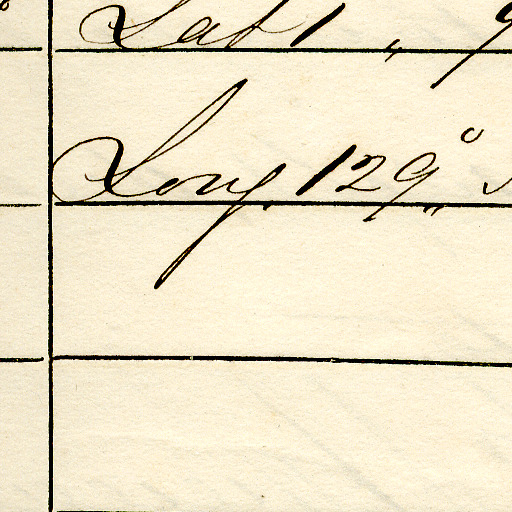 Lat 1 „ 9
Long. 129° „